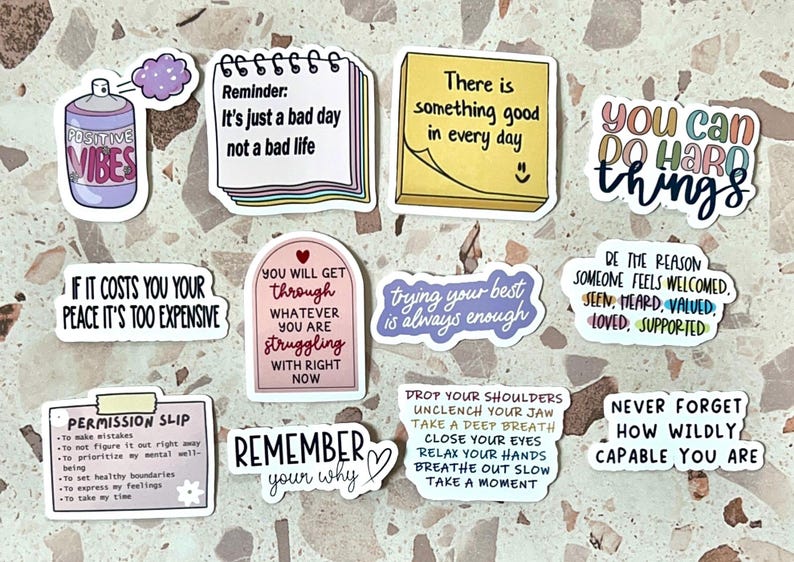 POSITIVE
VIBES
Reminder:
It's just a bad day
not a bad life
There is
something good
in every day
YOU CAN
DO HARD
things
IF IT COSTS YOU YOUR
PEACE IT'S TOO EXPENSIVE
YOU WILL GET
through
WHATEVER
YOU ARE
struggling
WITH RIGHT
NOW
trying your best
is always enough
BE THE REASON
SOMEONE FEELS WELCOMED,
SEEN, HEARD, VALUED,
LOVED, SUPPORTED
PERMISSION SLIP
• To make mistakes
• To not figure it out right away
• To prioritize my mental well-
being
• To set healthy boundaries
• To express my feelings
• To take my time
REMEMBER
your why
DROP YOUR SHOULDERS
UNCLENCH YOUR JAW
TAKE A DEEP BREATH
CLOSE YOUR EYES
RELAX YOUR HANDS
BREATHE OUT SLOW
TAKE A MOMENT
NEVER FORGET
HOW WILDLY
CAPABLE YOU ARE